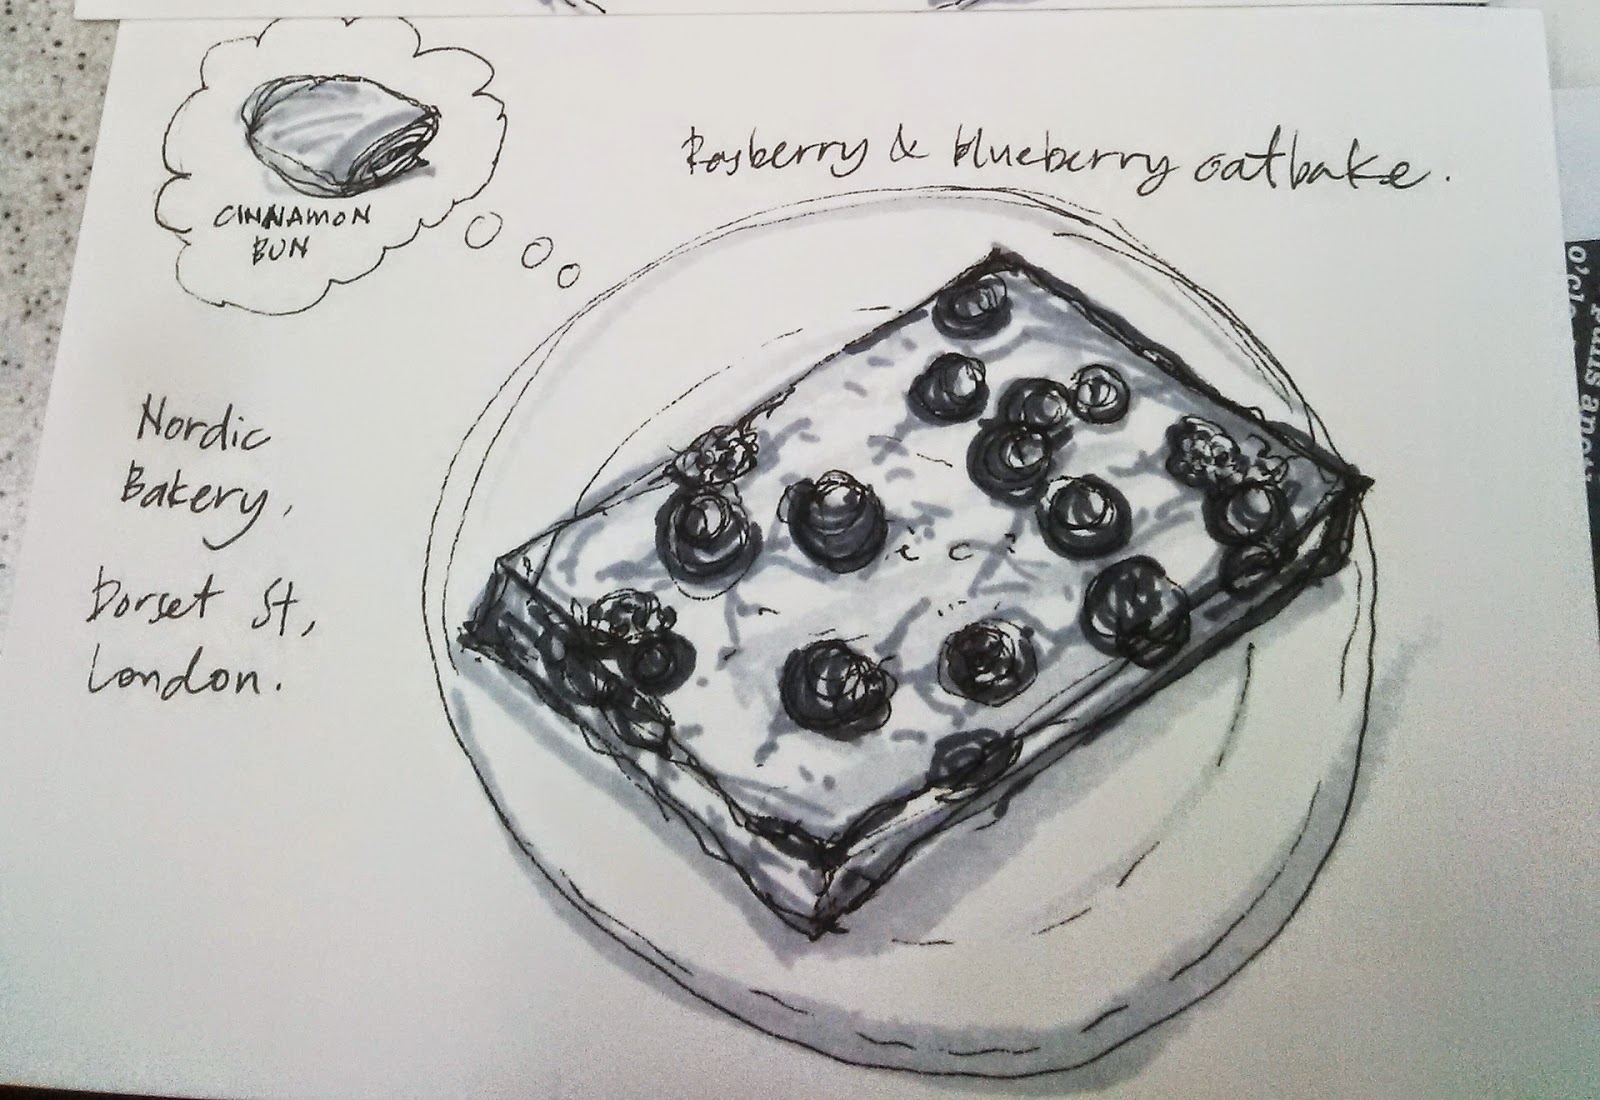 Rasberry & blueberry oatbake.
CINNAMON
BUN
Nordic
Bakery,
Dorset St,
London.